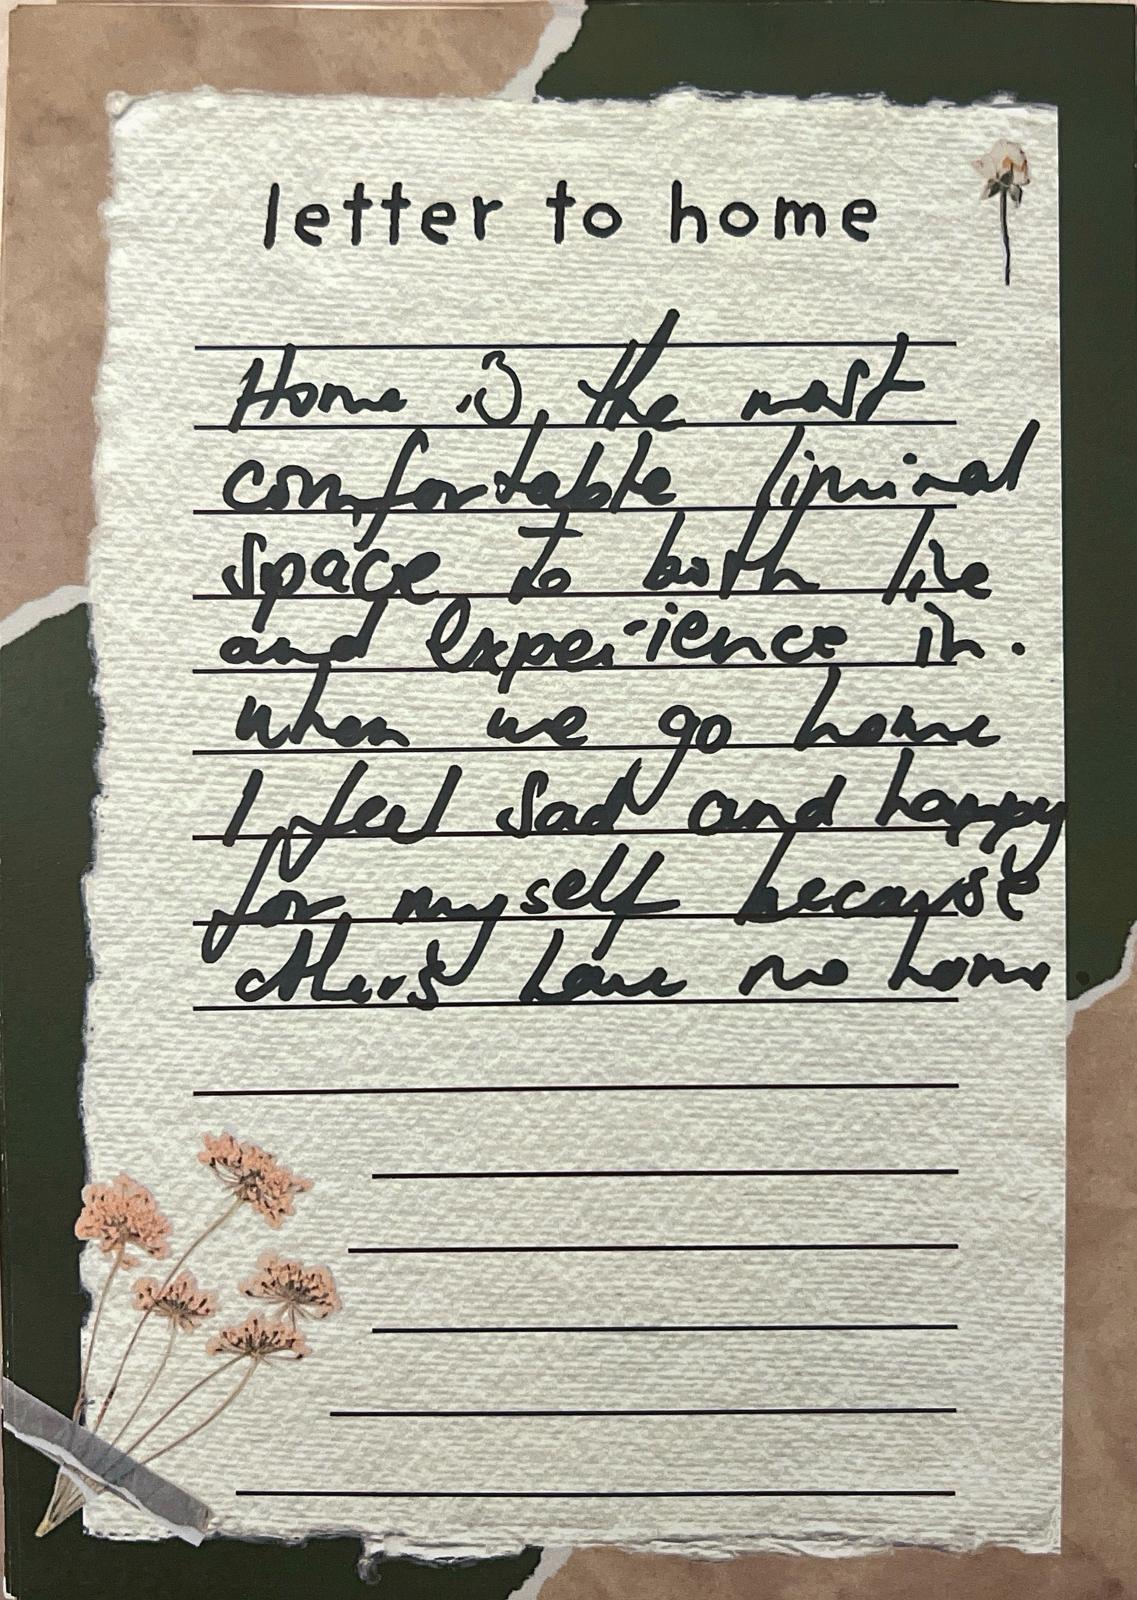 letter to home
Home is the most
comfortable liminal
space to both live
and experience in.
When we go home
I feel sad and happy
for myself because
others have no home